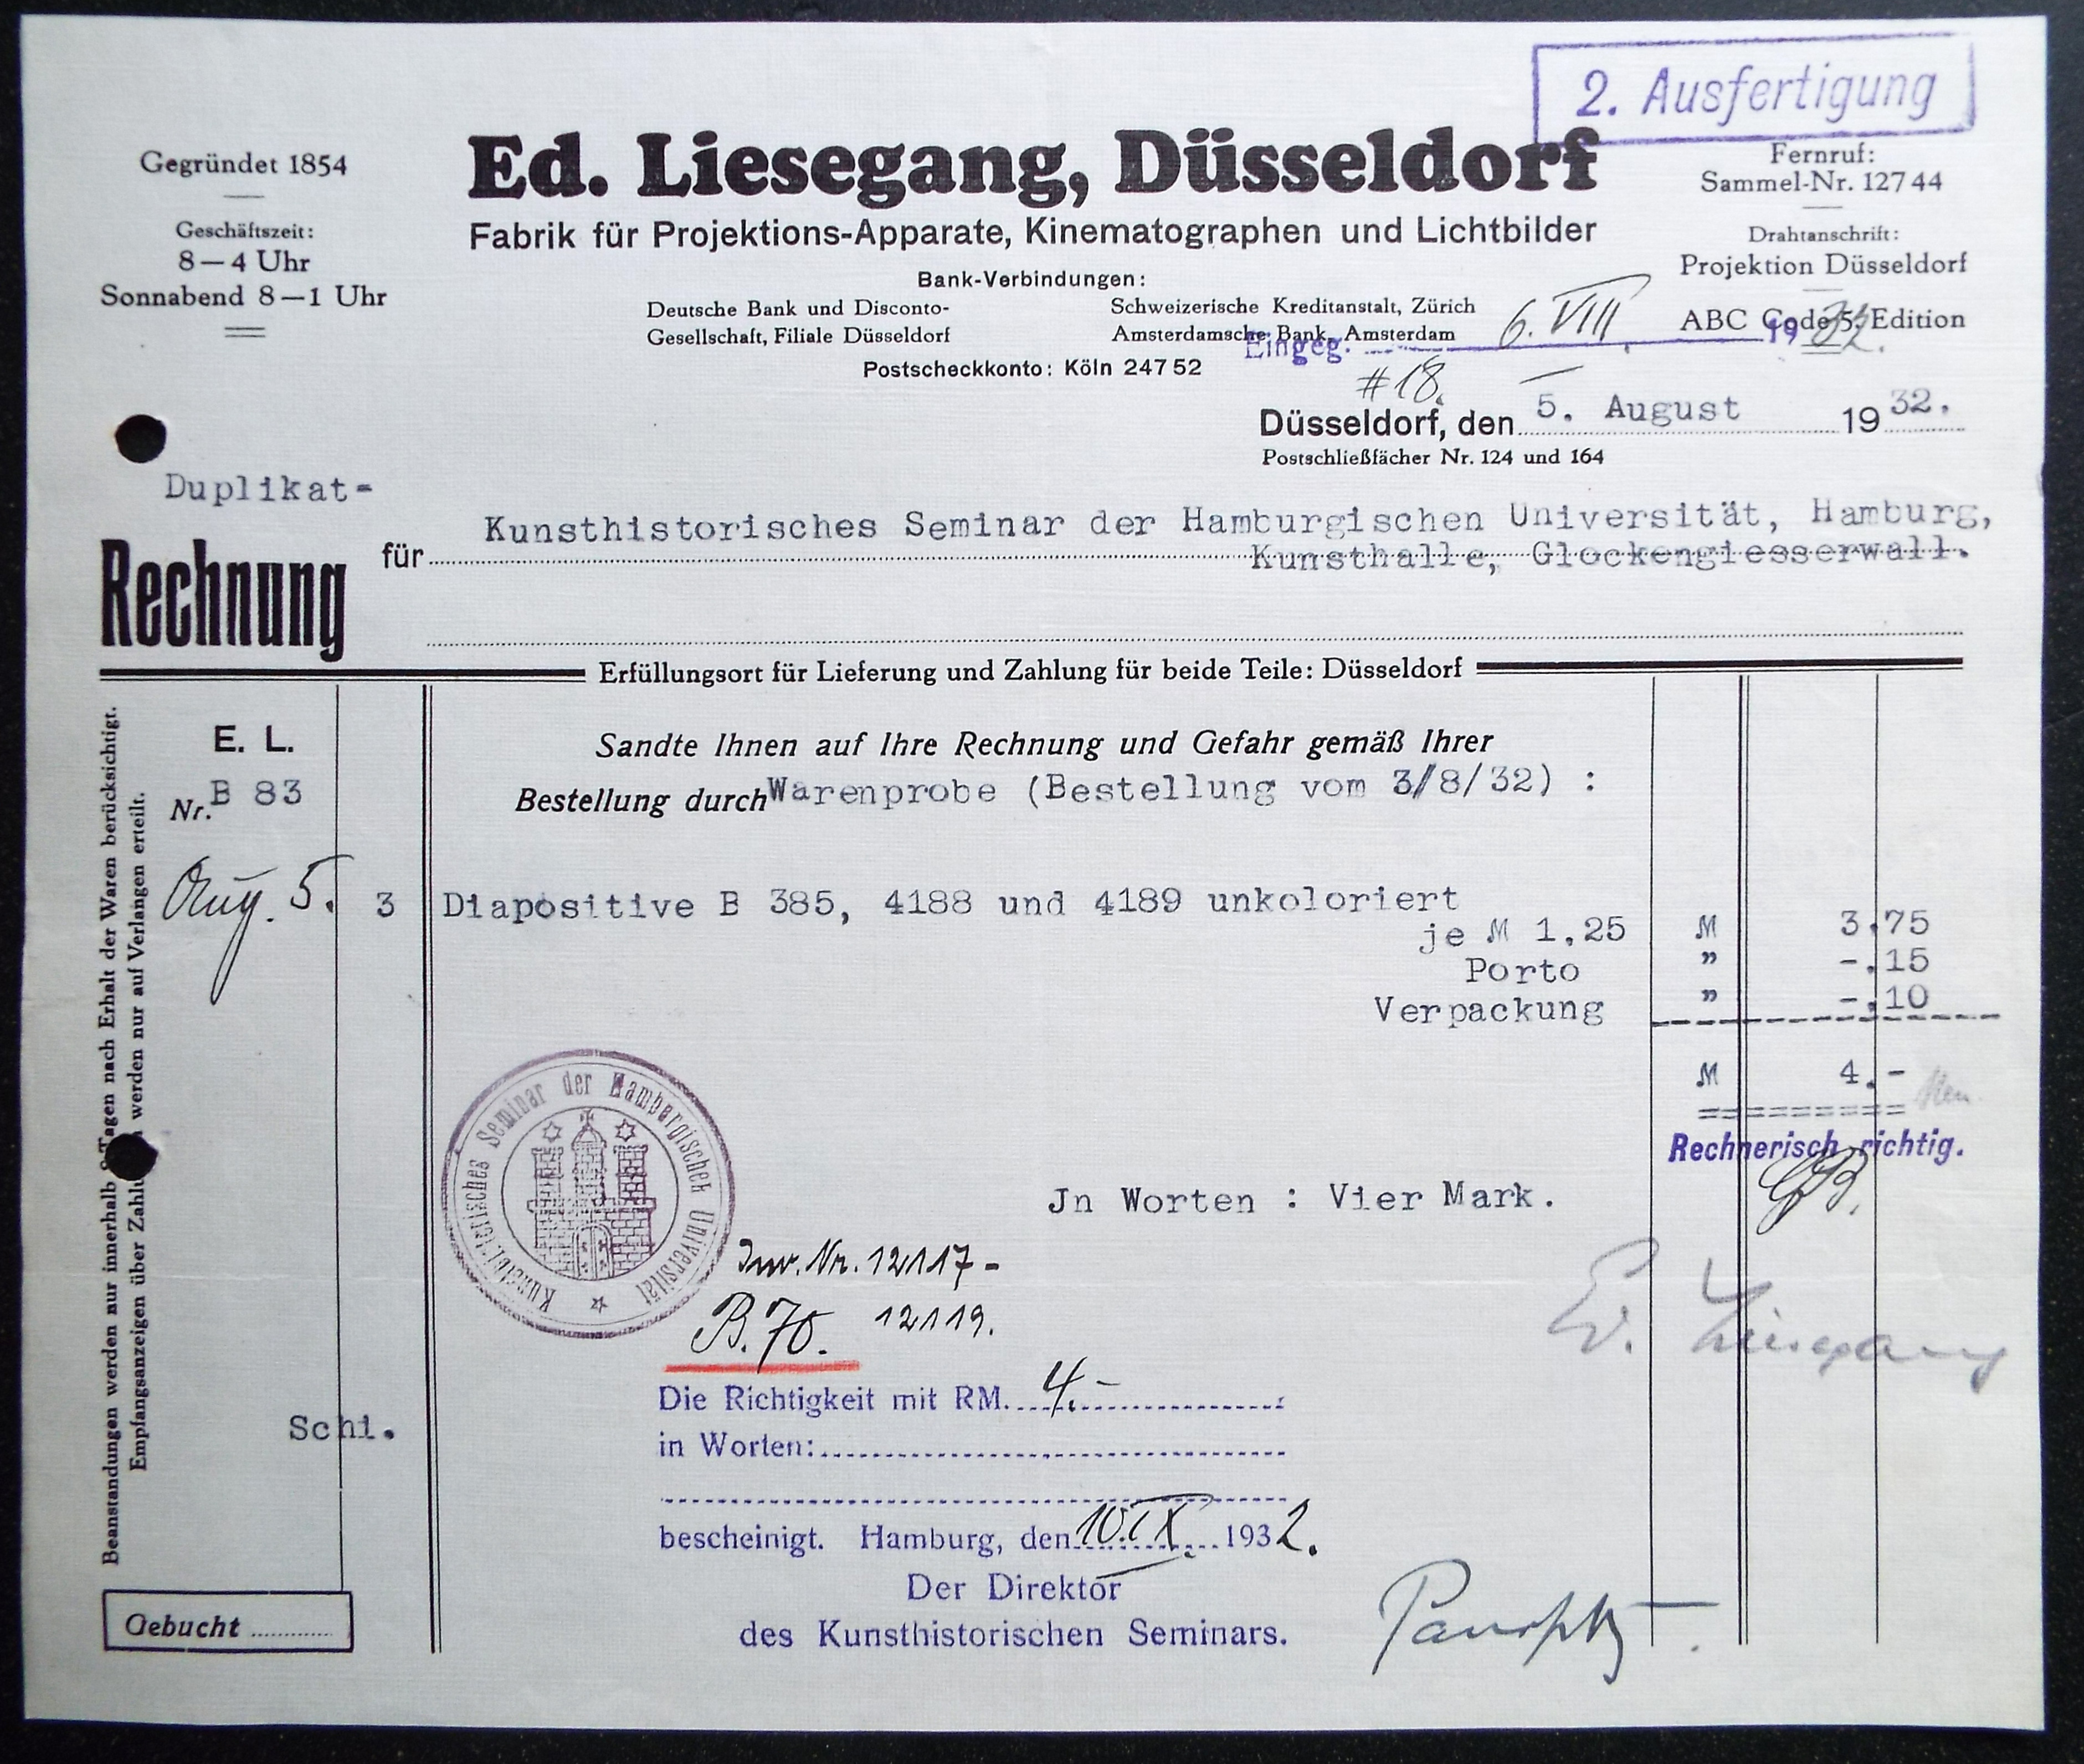 2. Ausfertigung
Gegründet 1854
Geschäftszeit:
8—4 Uhr
Sonnabend 8—1 Uhr
Ed. Liesegang, Düsseldorf
Fabrik für Projektions-Apparate, Kinematographen und Lichtbilder
Bank-Verbindungen:
Deutsche Bank und Disconto-
Gesellschaft, Filiale Düsseldorf
Schweizerische Kreditanstalt, Zürich
Amsterdamsche Bank, Amsterdam
Postscheckkonto: Köln 247 52
Fernruf:
Sammel-Nr. 127 44
Drahtanschrift:
Projektion Düsseldorf
ABC Code 5. Edition
Eingeg. 6. VIII. 1932.
#18.
Düsseldorf, den 5. August 1932.
Postschließfächer Nr. 124 und 164
Duplikat-
Rechnung
für Kunsthistorisches Seminar der Hamburgischen Universität, Hamburg,
Kunsthalle, Glockengiesserwall.
Erfüllungsort für Lieferung und Zahlung für beide Teile: Düsseldorf
Beanstandungen werden nur innerhalb Tagen nach Erhalt der Waren berücksichtigt.
Empfangsanzeigen über werden nur auf Verlangen erteilt.
E. L.
Nr. B 83
Sandte Ihnen auf Ihre Rechnung und Gefahr gemäß Ihrer
Bestellung durch Warenprobe (Bestellung vom 3/8/32) :
Aug. 5. 3 Diapositive B 385, 4188 und 4189 unkoloriert
je M 1,25 M 3.75
Porto " -.15
Verpackung " -.10
M 4.-
Rechnerisch richtig.
Kunsthistorisches Seminar der Hamburgischen Universität
Jn Worten : Vier Mark.
Inv. Nr. 12117-
12119.
B. 70.
Ed. Liesegang
Die Richtigkeit mit RM. 4.-
in Worten:
Schi.
bescheinigt. Hamburg, den 10. IX. 1932.
Der Direktor
des Kunsthistorischen Seminars.
Panofsky
Gebucht